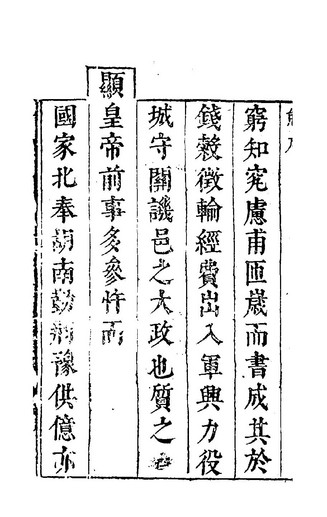 窮知䆒慮甫匝歲而書成其於
錢穀徵輸經費出入軍興力役
城守關譏邑之大政也質之
顯皇帝前事多參忤而
國家北奉胡南勤豫供億亦